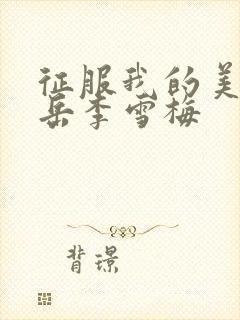 征服我的美
岳李雪梅
背璟